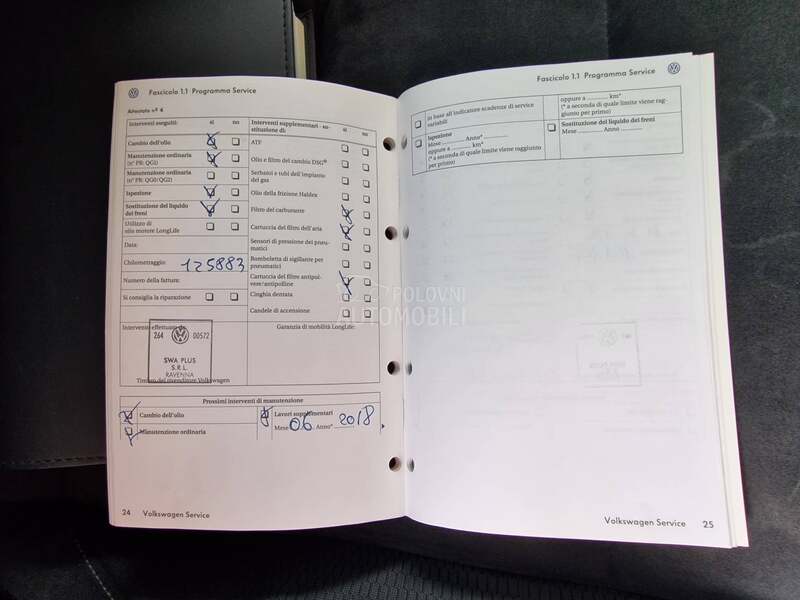 Fascicolo 1.1 Programma Service
Attestato nº 4
Interventi eseguiti: sì no
Cambio dell'olio
Manutenzione ordinaria
(nº PR: QG1)
Manutenzione ordinaria
(nº PR: QG0/QG2)
Ispezione
Sostituzione del liquido
dei freni
Utilizzo di
olio motore LongLife
Data:
Chilometraggio: 125883
Numero della fattura:
Si consiglia la riparazione
Interventi supplementari - so-
stituzione di: sì no
ATF
Olio e filtro del cambio DSG®
Serbatoi e tubi dell'impianto
del gas
Olio della frizione Haldex
Filtro del carburante
Cartuccia del filtro dell'aria
Sensori di pressione dei pneu-
matici
Bomboletta di sigillante per
pneumatici
Cartuccia del filtro antipol-
vere/antipolline
Cinghia dentata
Candele di accensione
Interventi effettuati da:
264 00572
SWA PLUS
S.R.L.
RAVENNA
Timbro del rivenditore Volkswagen
Garanzia di mobilità LongLife:
Prossimi interventi di manutenzione
Cambio dell'olio
Manutenzione ordinaria
Lavori supplementari
Mese 06 Anno* 2018
24 Volkswagen Service
Fascicolo 1.1 Programma Service
In base all'indicatore scadenze di service
variabili
Ispezione
Mese ........ Anno* ............
oppure a ............ km*
(* a seconda di quale limite viene raggiunto
per primo)
oppure a ............ km*
(* a seconda di quale limite viene rag-
giunto per primo)
Sostituzione del liquido dei freni
Mese ........ Anno ............
Volkswagen Service 25
POLOVNI
AUTOMOBILI